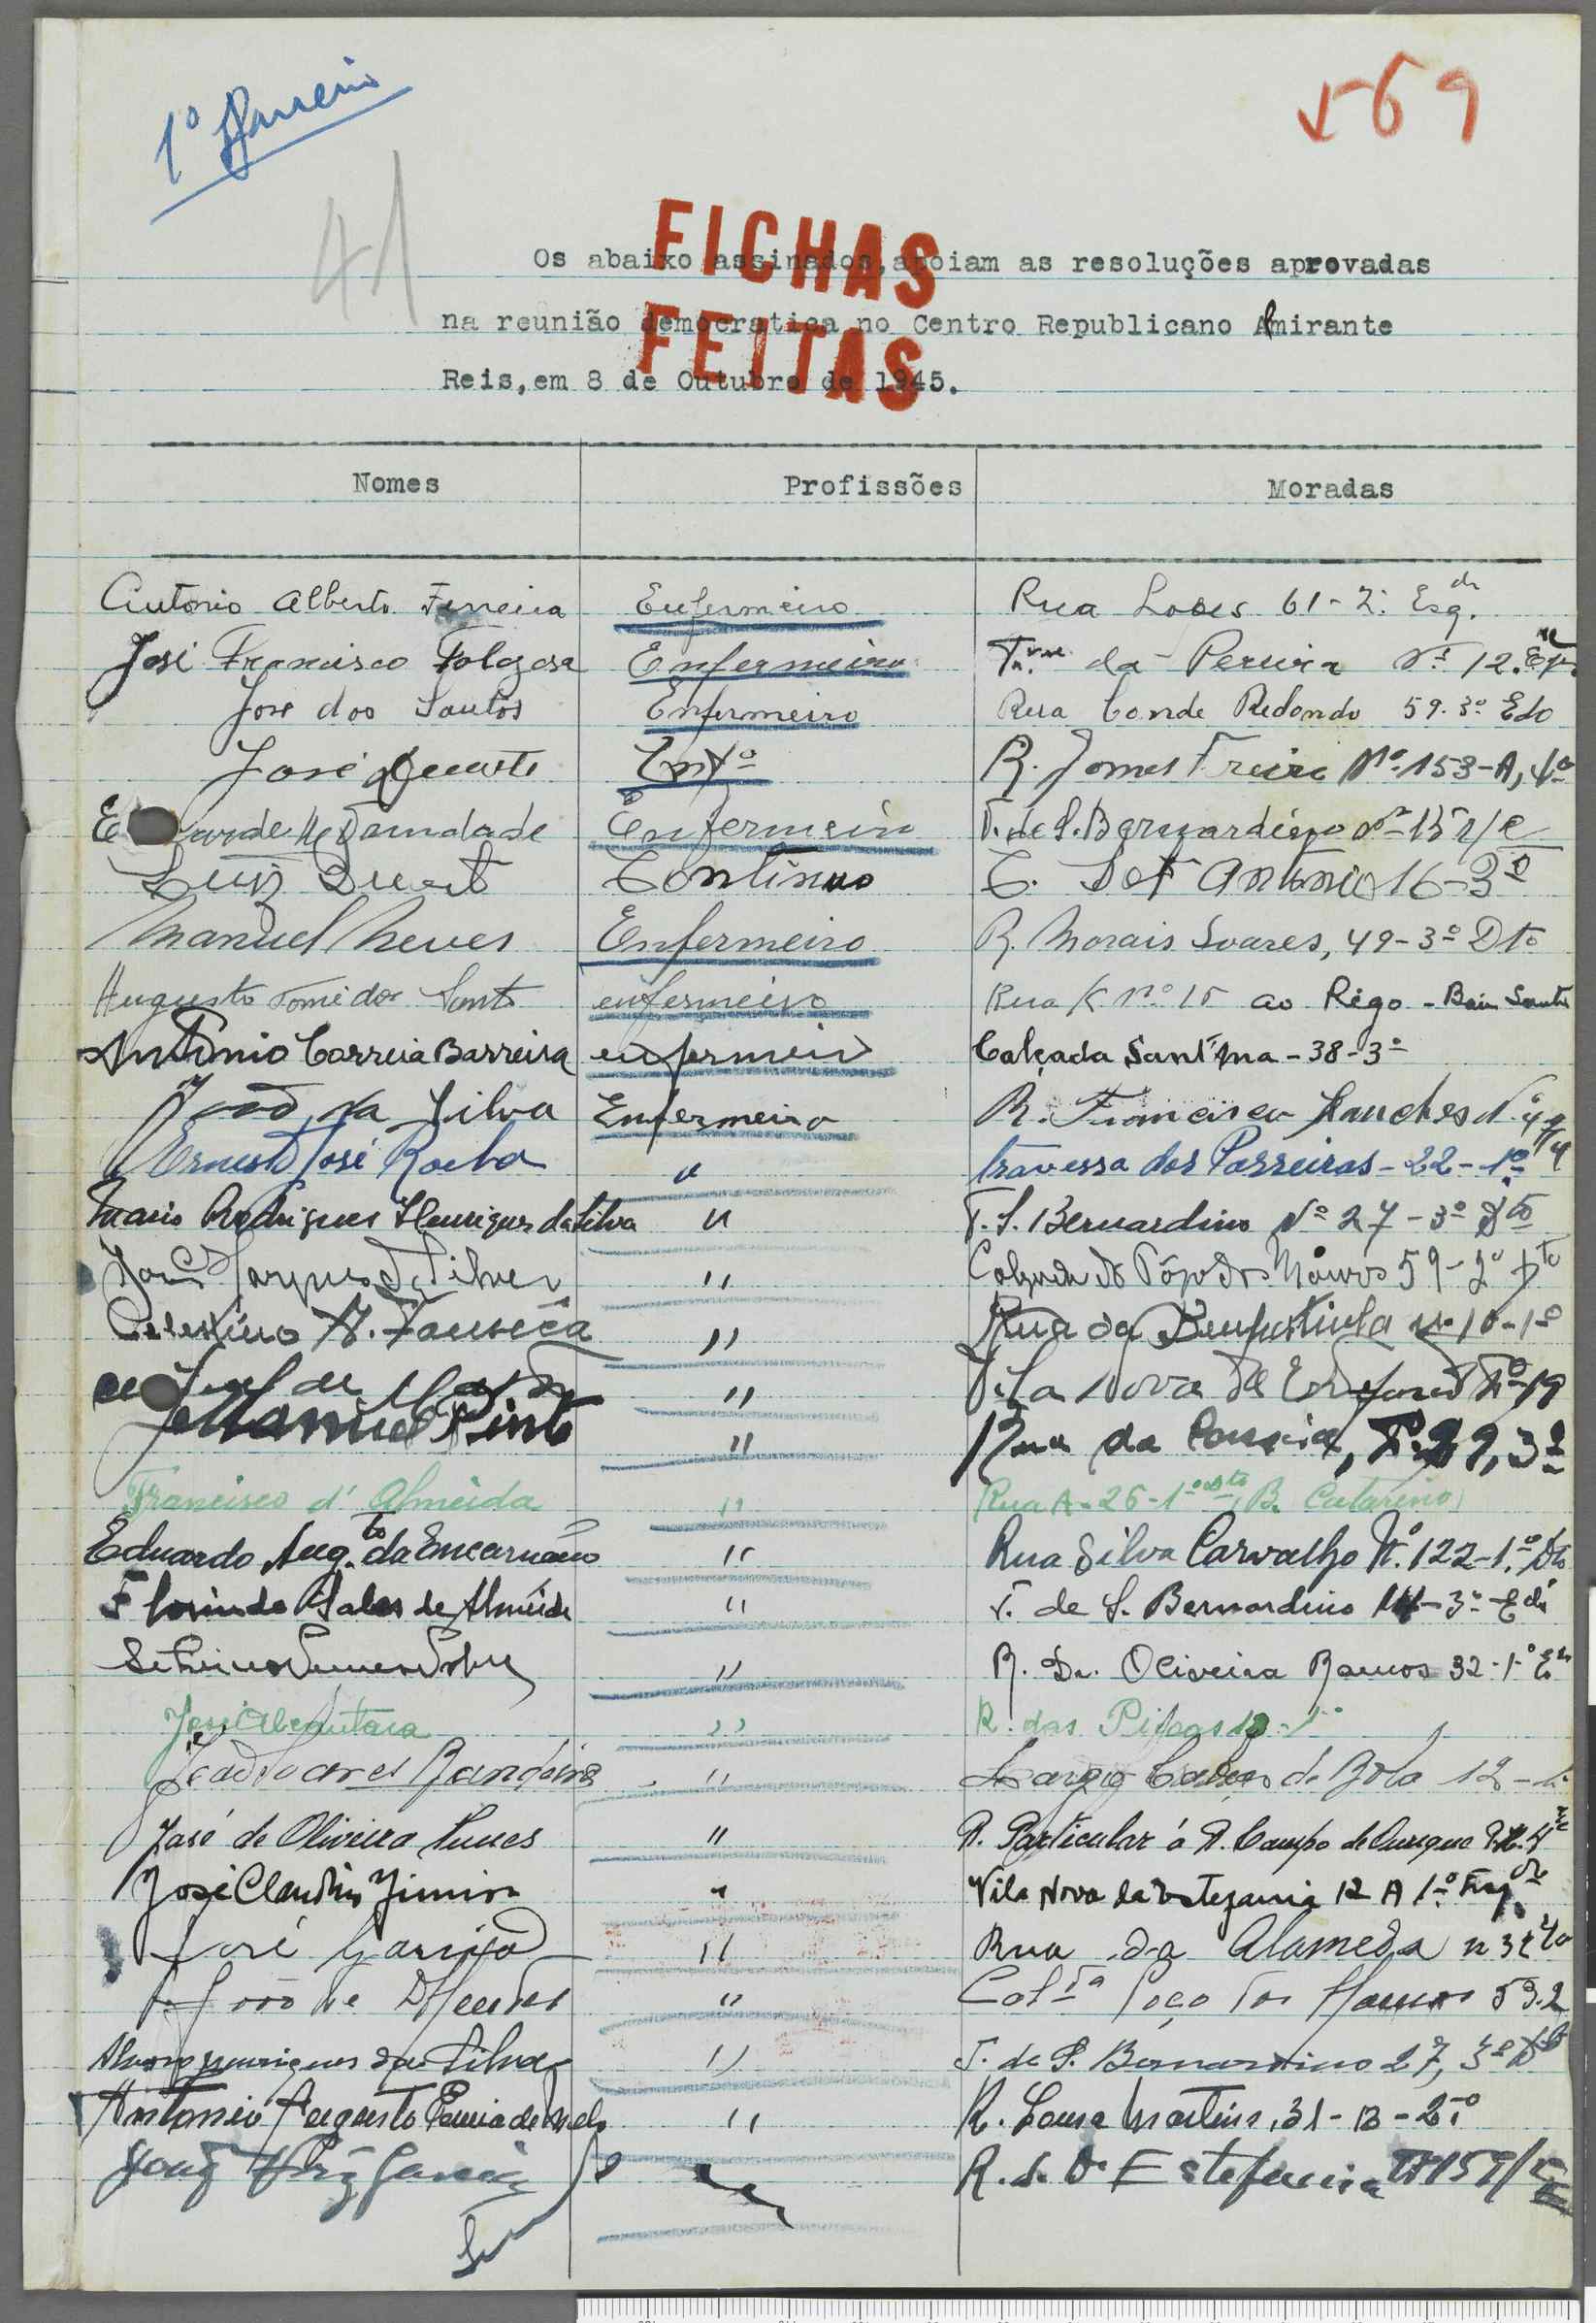 1º
569
41
FICHAS
FEITAS
Os abaixo assinados, apoiam as resoluções aprovadas
na reunião democratica no Centro Republicano Almirante
Reis, em 8 de Outubro de 1945.
Nomes Profissões Moradas
Antonio Alberto Ferreira Enfermeiro Rua 61-2º Esqdo
José Francisco Folgosa Enfermeiro da Pereira Nº 12
José dos Santos Enfermeiro Rua Conde Redondo 59-3º Edo
José Duarte R. Gomes Freire Nº 153-A, 4º
Trindade Enfermeiro T. de S. Bernardino Nº 15 r/c
Luiz Duarte Continuo C. Stº Antonio 16-3º
Manuel Neves Enfermeiro R. Morais Soares, 49-3º Dto
Augusto Tomé dos Santos enfermeiro Rua K nº 15 ao Rêgo - Bairro Santos
António Correia Barreira enfermeiro Calçada Sant'Ana-38-3º
João da Silva Enfermeiro R. Francisco Sanches Nº
Ernesto José Rocha " travessa dos Parreiras-22-1º
Mario Rodrigues Henriques da Silva " T. S. Bernardino Nº 27-3º Dto
Marques da Silva " Calçada do Poço dos Mouros 59-2º Dto
Celestino A. Fonseca " Rua da Bempostinha nº 10-1º
" Vila Nova de Nº 19
Manuel Pinto " Rua da 3º
Francisco d'Almeida " Rua A-26-1º Dto, B. Catarino
Eduardo Aug.to da Encarnação " Rua Silva Carvalho Nº 122-1º Dto
Florindo de Almeida " T. de S. Bernardino 14-3º Edo
" R. Dr. Oliveira Ramos 32-1º
José Alcantara " R. das 1º
João Soares Bandeira " Largo Cabeço de Bola 12
José de Oliveira Nunes " R. Particular á R. Campo de Ourique
José Claudino Junior " Vila Nova da Estefania 12 A 1º Esqdo
José " Rua da Alameda n
João de " Calçada Poço dos Mouros 59-2
Alvaro Henriques da Silva " T. de S. Bernardino 27, 3º Dto
Antonio Augusto de Melo " R. Sousa Martins, 31-2º
Garcia R. de D. Estefania Nº 159